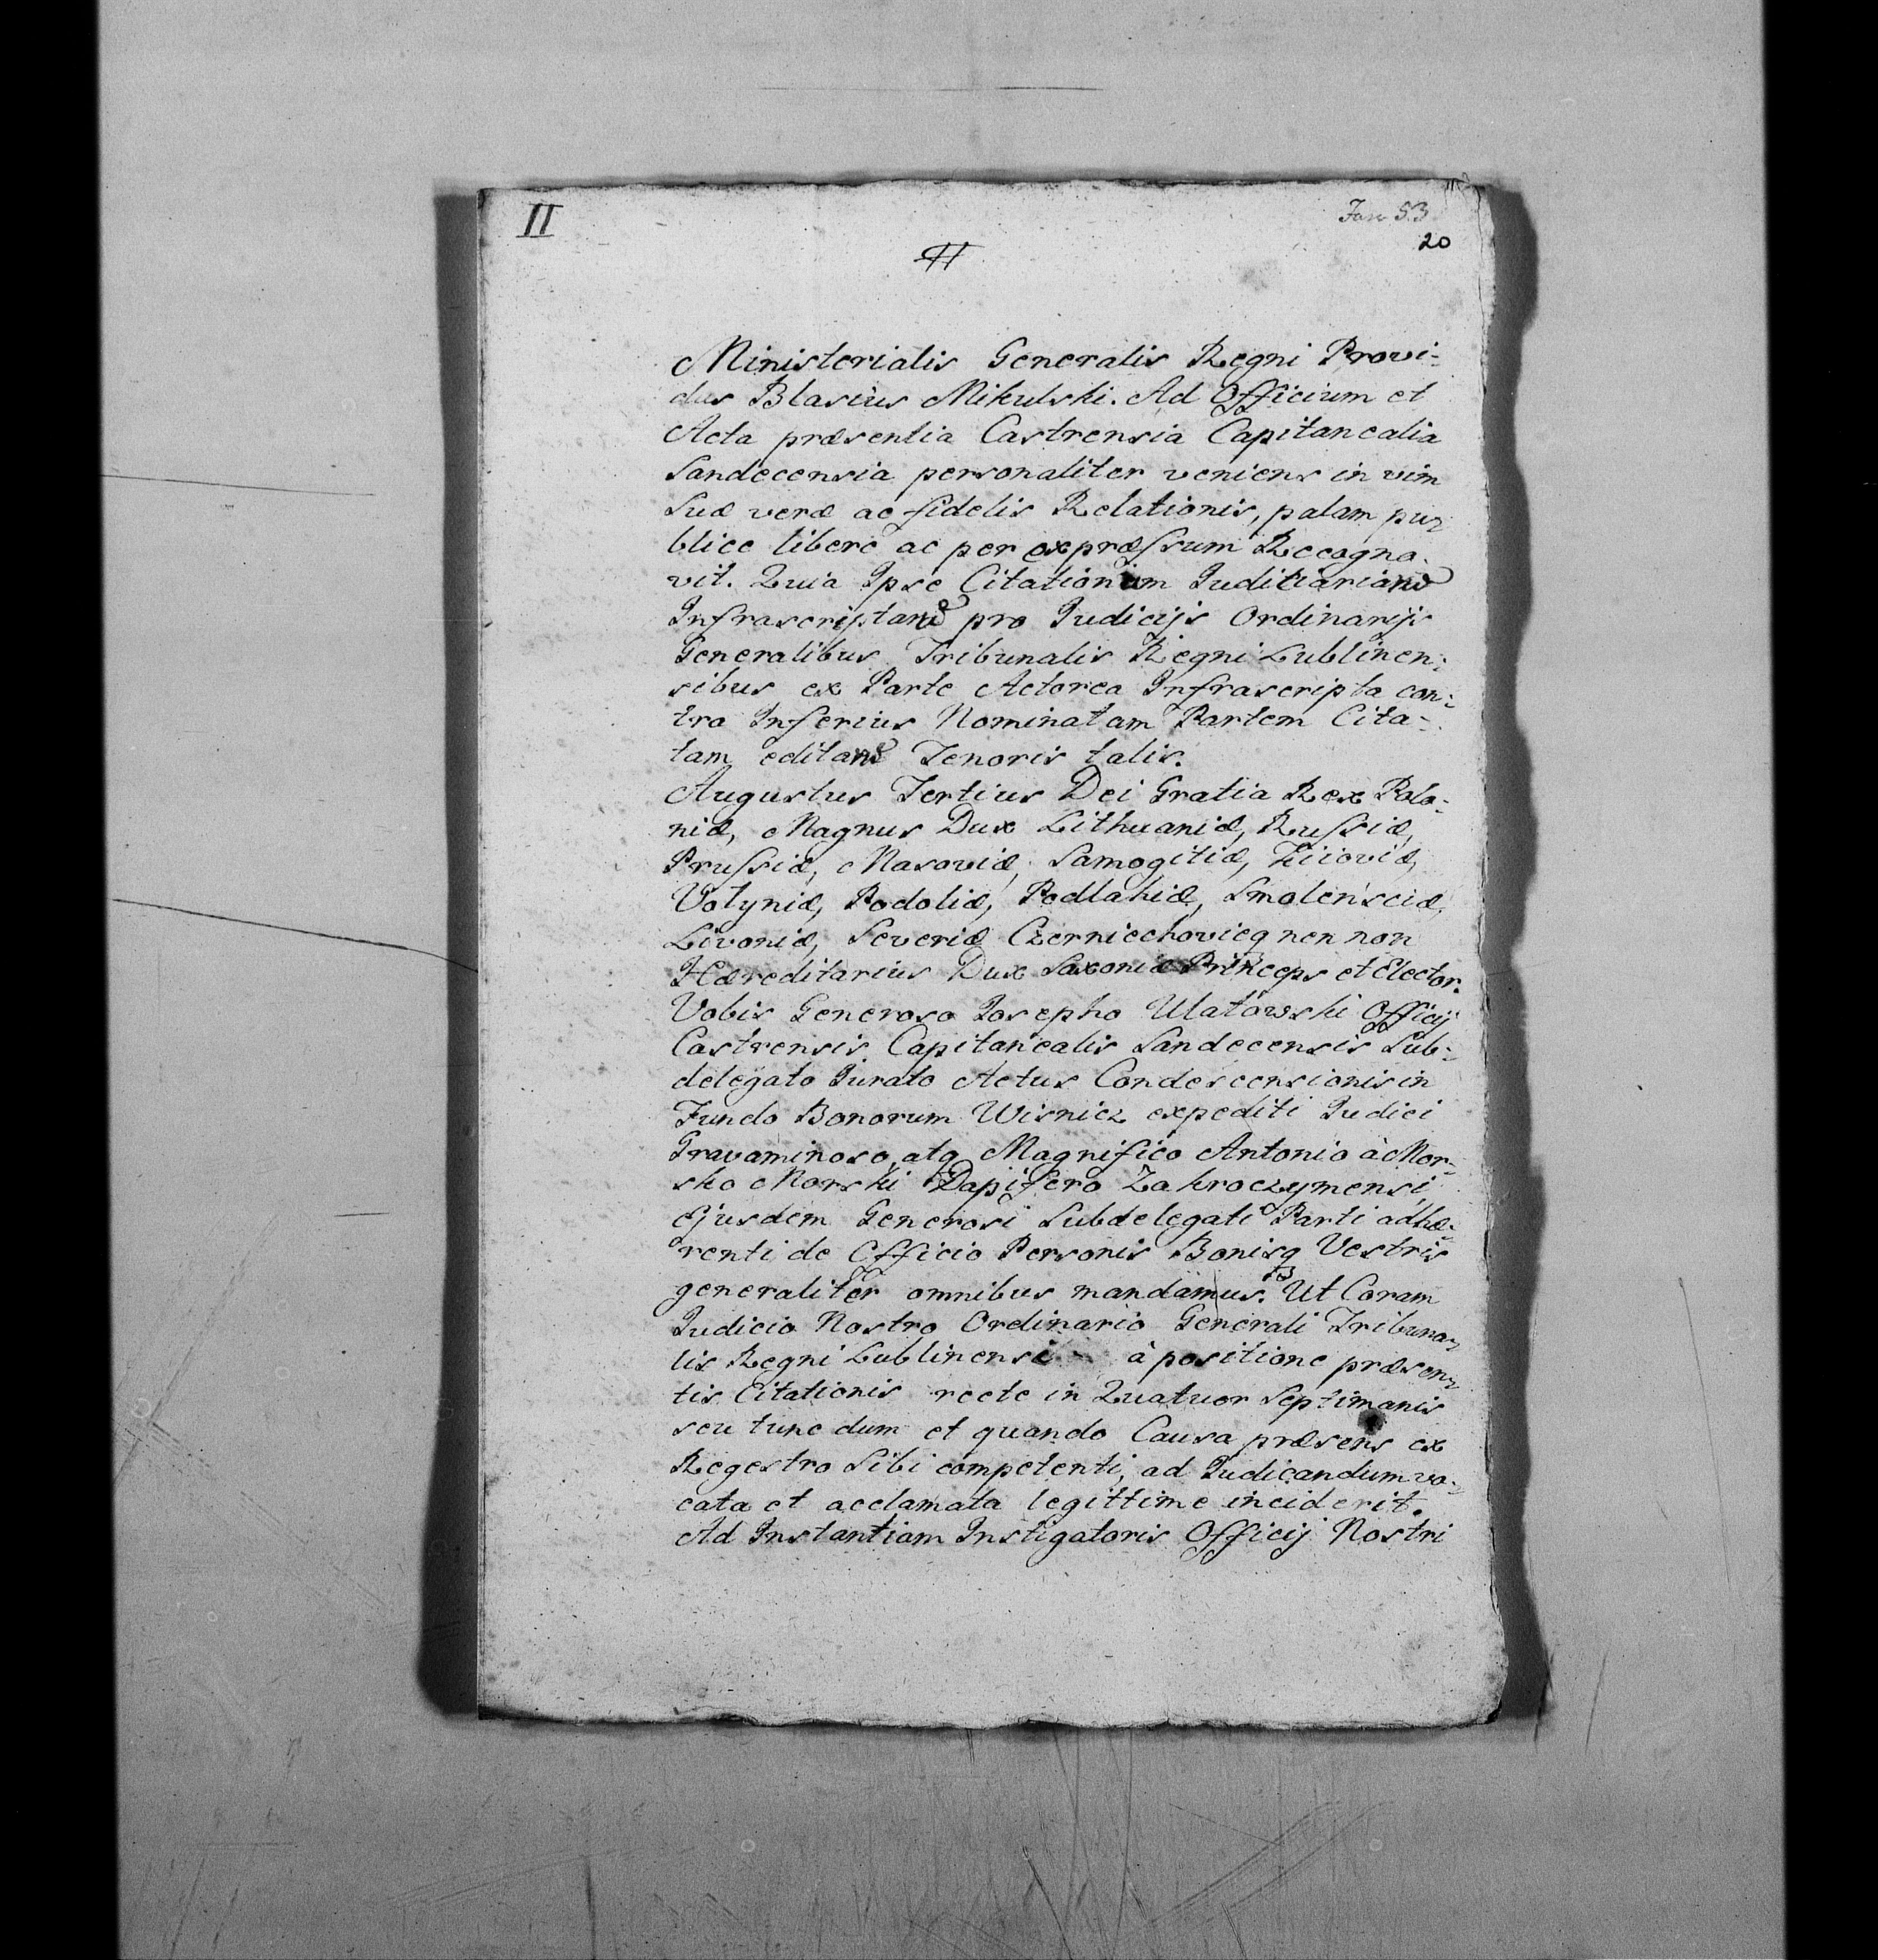 II
53
20
H
Ministerialis Generalis Regni Provi-
dus Blasius Mikulski. Ad Officium et
Acta præsentia Castrensia Capitanealia
Sandecensia personaliter veniens in vim
Suæ veræ ac fidelis Relationis, palam pu-
blice libere ac per expræssum Recogno-
vit. Quia Ipse Citationem Juditiariam
Infrascriptam pro Judicijs Ordinarijs
Generalibus Tribunalis Regni Lublinen-
sibus ex Parte Actorea Infrascripta con-
tra Inferius Nominatam Partem Cita-
tam editam Tenoris talis.
Augustus Tertius Dei Gratia Rex Polo-
niæ, Magnus Dux Lithuaniæ, Russiæ,
Prussiæ, Masoviæ, Samogitiæ, Kiioviæ,
Volyniæ, Podoliæ, Podlahiæ, Smolensciæ,
Livoniæ, Severiæ Czerniechovieq nen non
Hæreditarius Dux Saxoniæ Princeps et Elector.
Vobis Generoso Josepho Ulatowski Officij
Castrensis Capitanealis Sandecensis Sub-
delegato Jurato Actus Condescensionis in
Fundo Bonorum Wisnicz expediti Judici
Gravaminoso, atq Magnifico Antonio à Mor-
sko Morski Dapifero Zakroczymensi,
ejusdem Generosi Subdelegati Parti adhæ-
renti de Officio Personis Bonisq Vestris
generaliter omnibus mandamus. Ut Coram
Judicio Nostro Ordinario Generali Tribuna-
lis Regni Lublinensi à positione præsen-
tis Citationis recte in Quatuor Septimanis
seu tunc dum et quando Causa præsens ex
Regestro Sibi competenti, ad Judicandum vo-
cata et acclamata legittime inciderit.
Ad Instantiam Instigatoris Officij Nostri